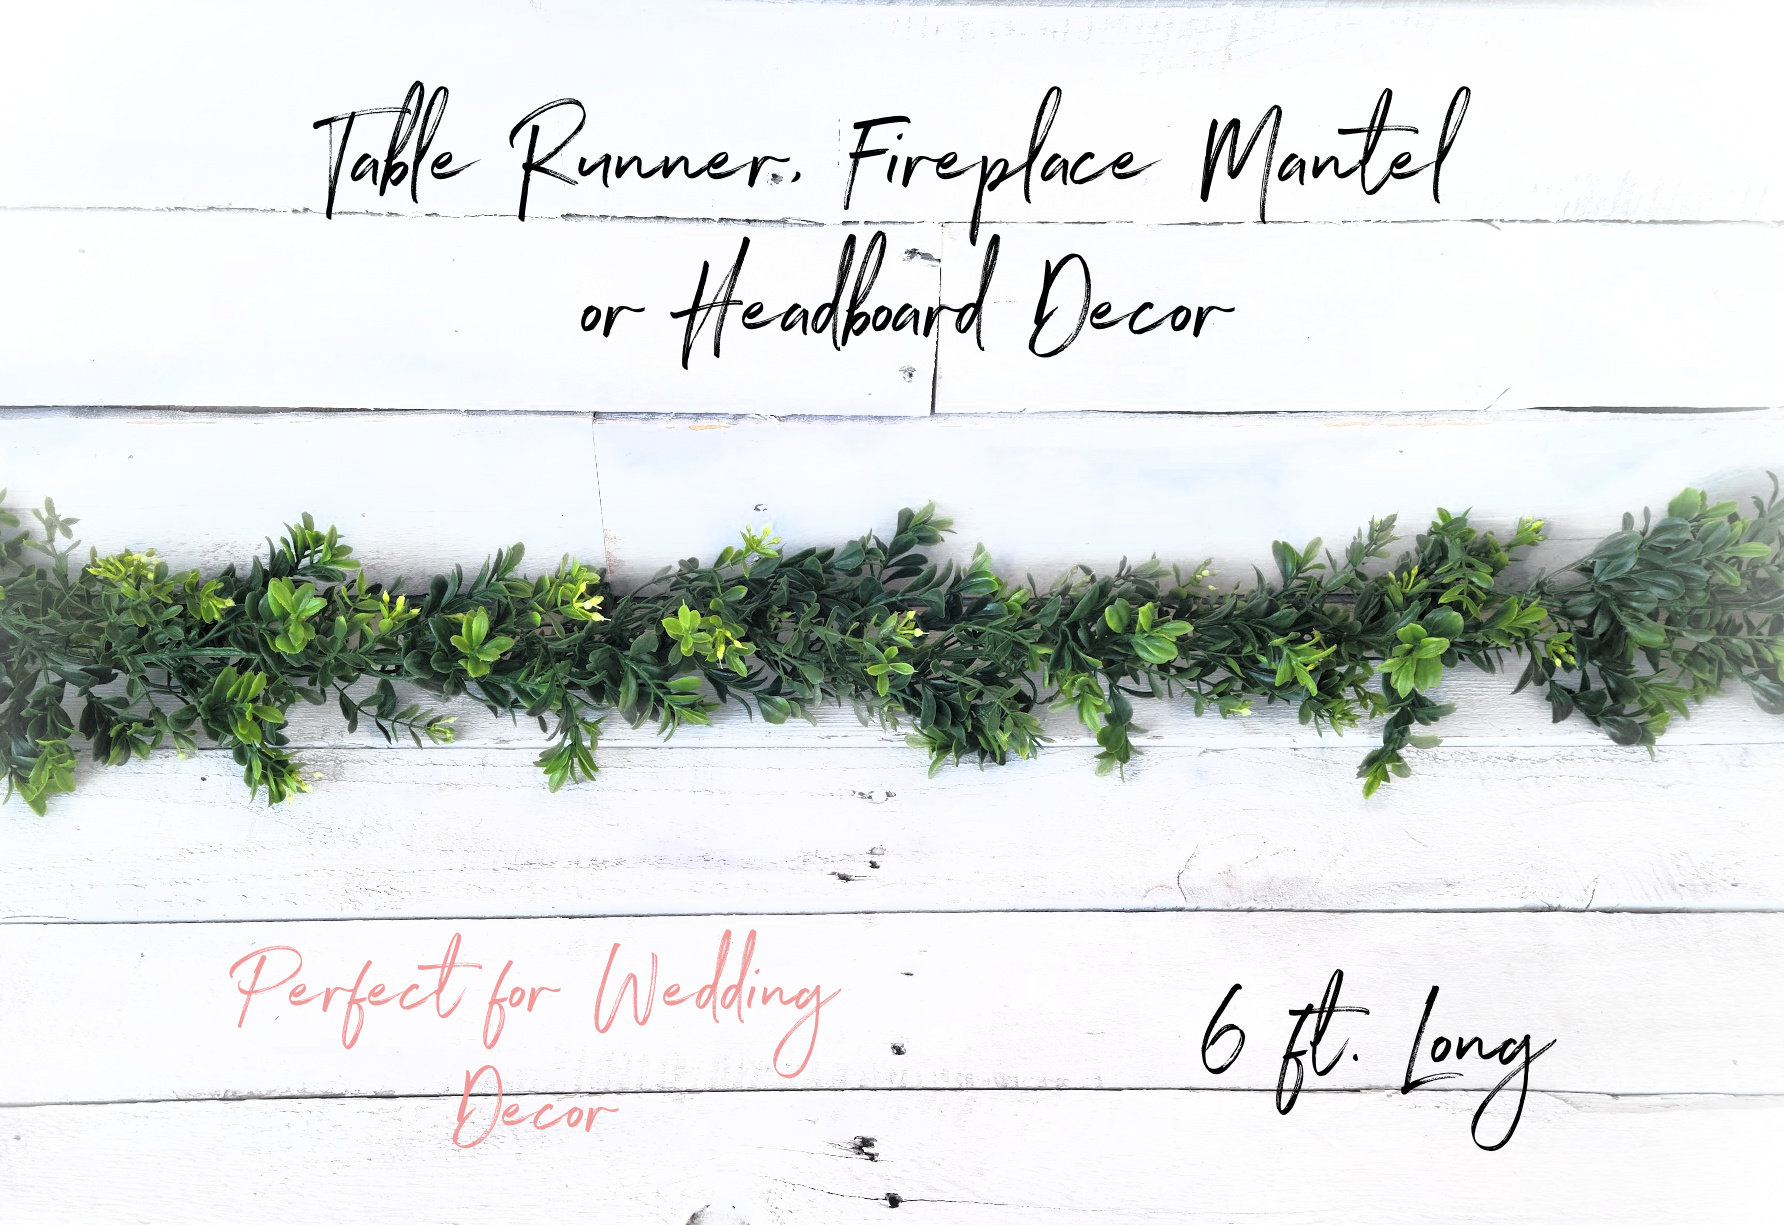 Table Runner, Fireplace Mantel
or Headboard Decor
Perfect for Wedding
Decor
6 ft. Long